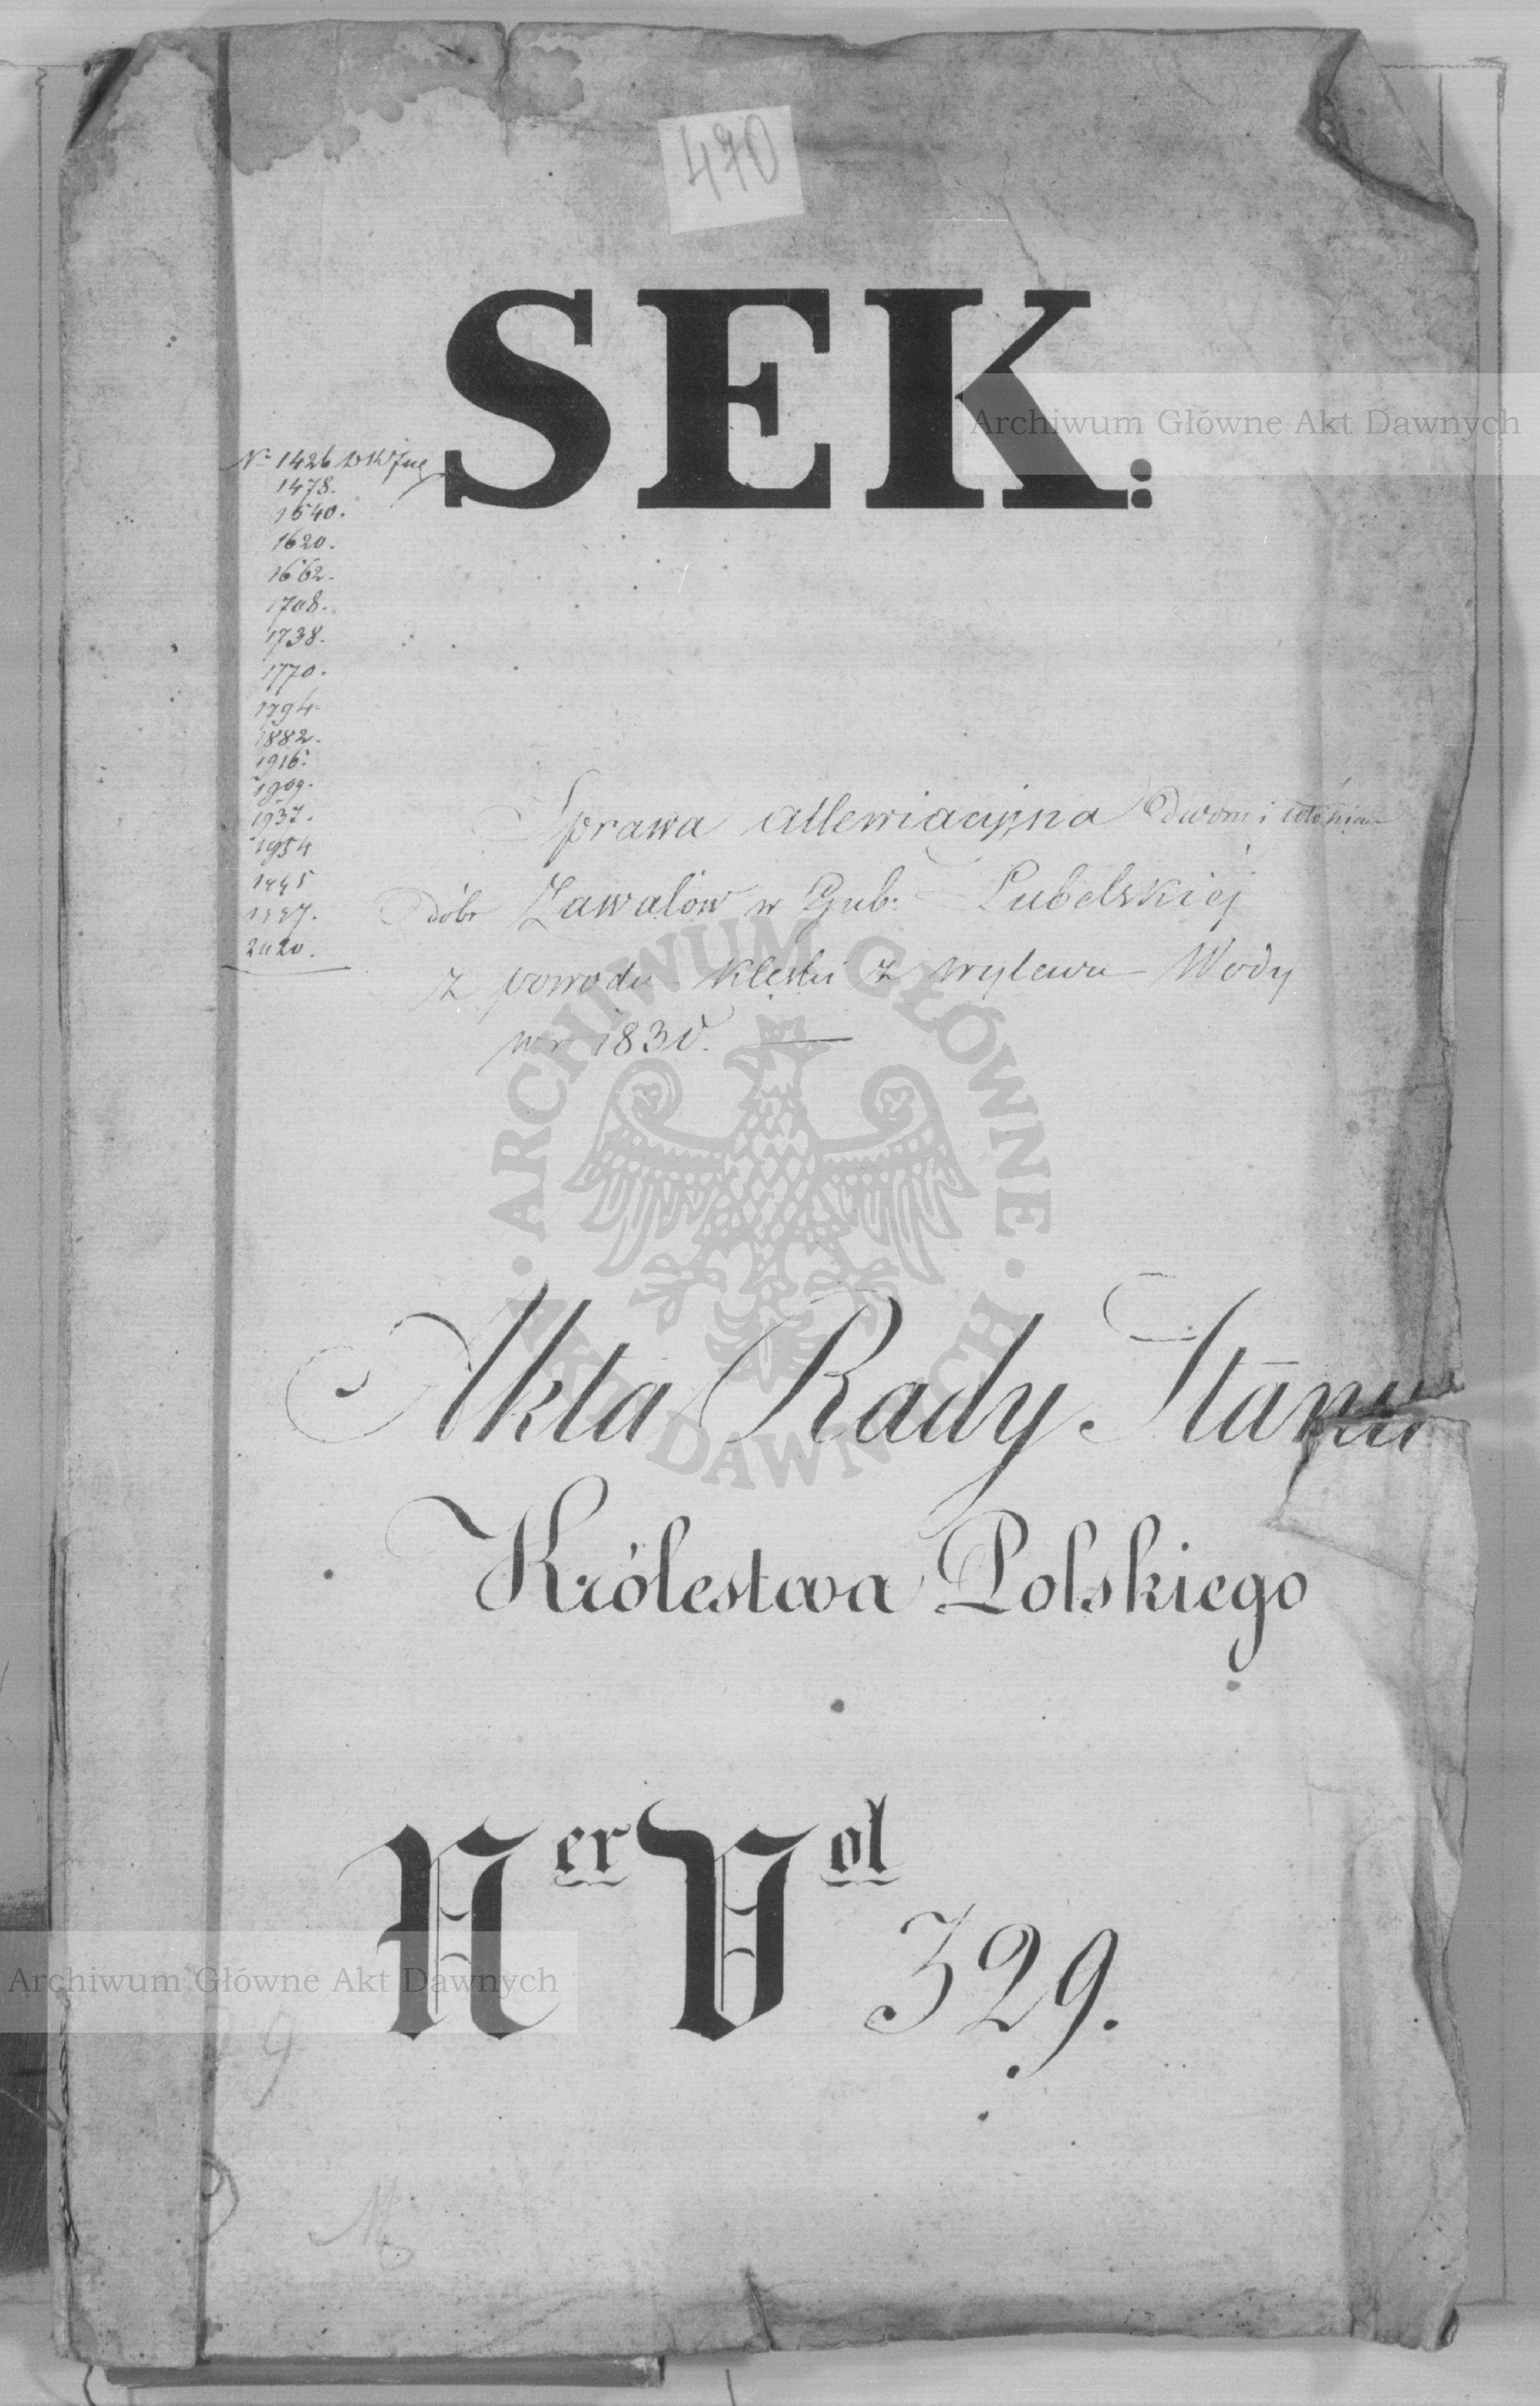 470
SEK:
Archiwum Główne Akt Dawnych
Nº 1426
1478.
1540.
1620.
1662.
1708.
1738.
1770.
1794
1882.
1916.
1909.
1937.
1954
1997.
2020.
Sprawa allewiacyjna Dworu i włościan
dóbr Zawalów w Gub: Lubelskiéj
z powodu klęski z wylewu Wody
w r 1830.
ARCHIWUM GŁÓWNE AKT DAWNYCH
Akta Rady Stanu
Królestwa Polskiego
Ner Vol 329.
Archiwum Główne Akt Dawnych
9